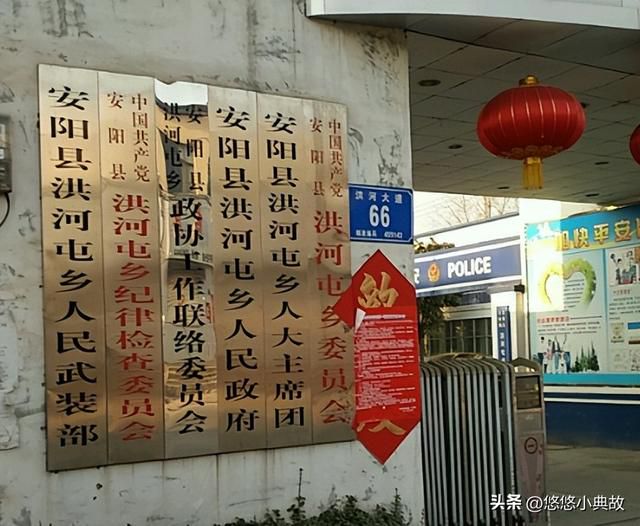 中国共产党
安阳县 洪河屯乡委员会
安阳县洪河屯乡人大主席团
安阳县洪河屯乡人民政府
安阳县
洪河屯乡 政协工作联络委员会
中国共产党
安阳县 洪河屯乡纪律检查委员会
安阳县洪河屯乡人民武装部
滨河大道
66
POLICE
加快平安
头条 @悠悠小典故